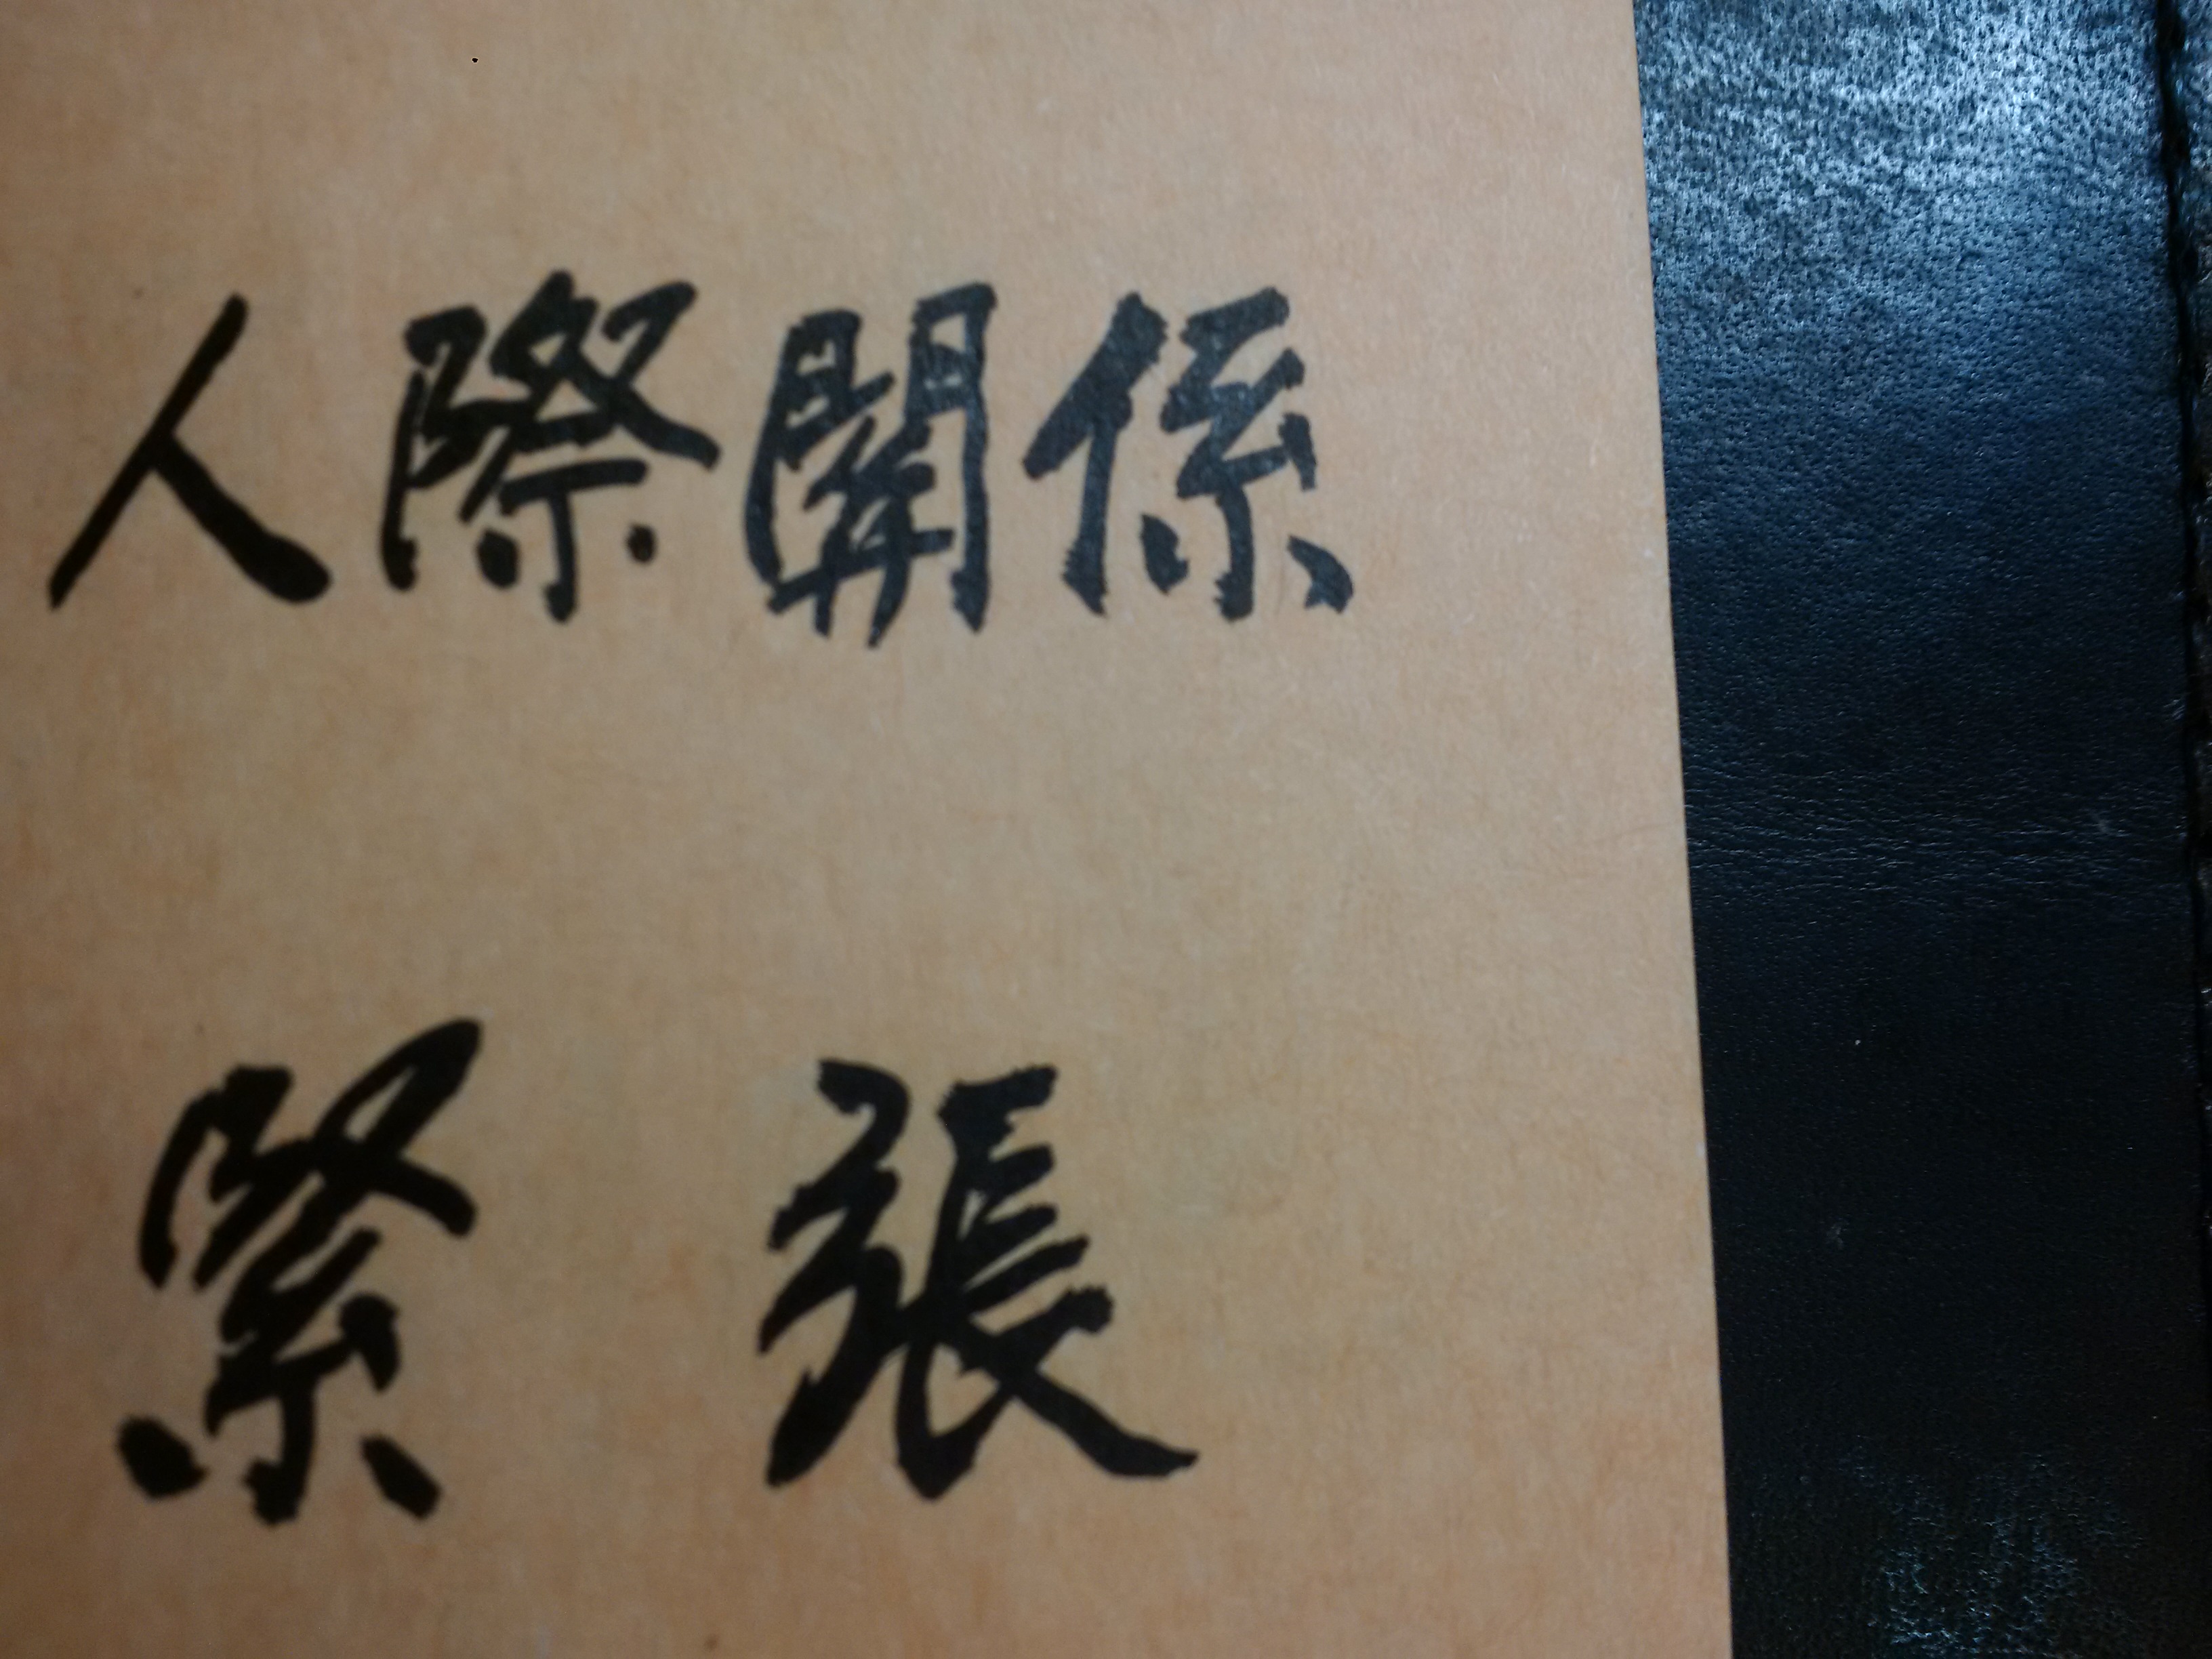 人際關係
緊張